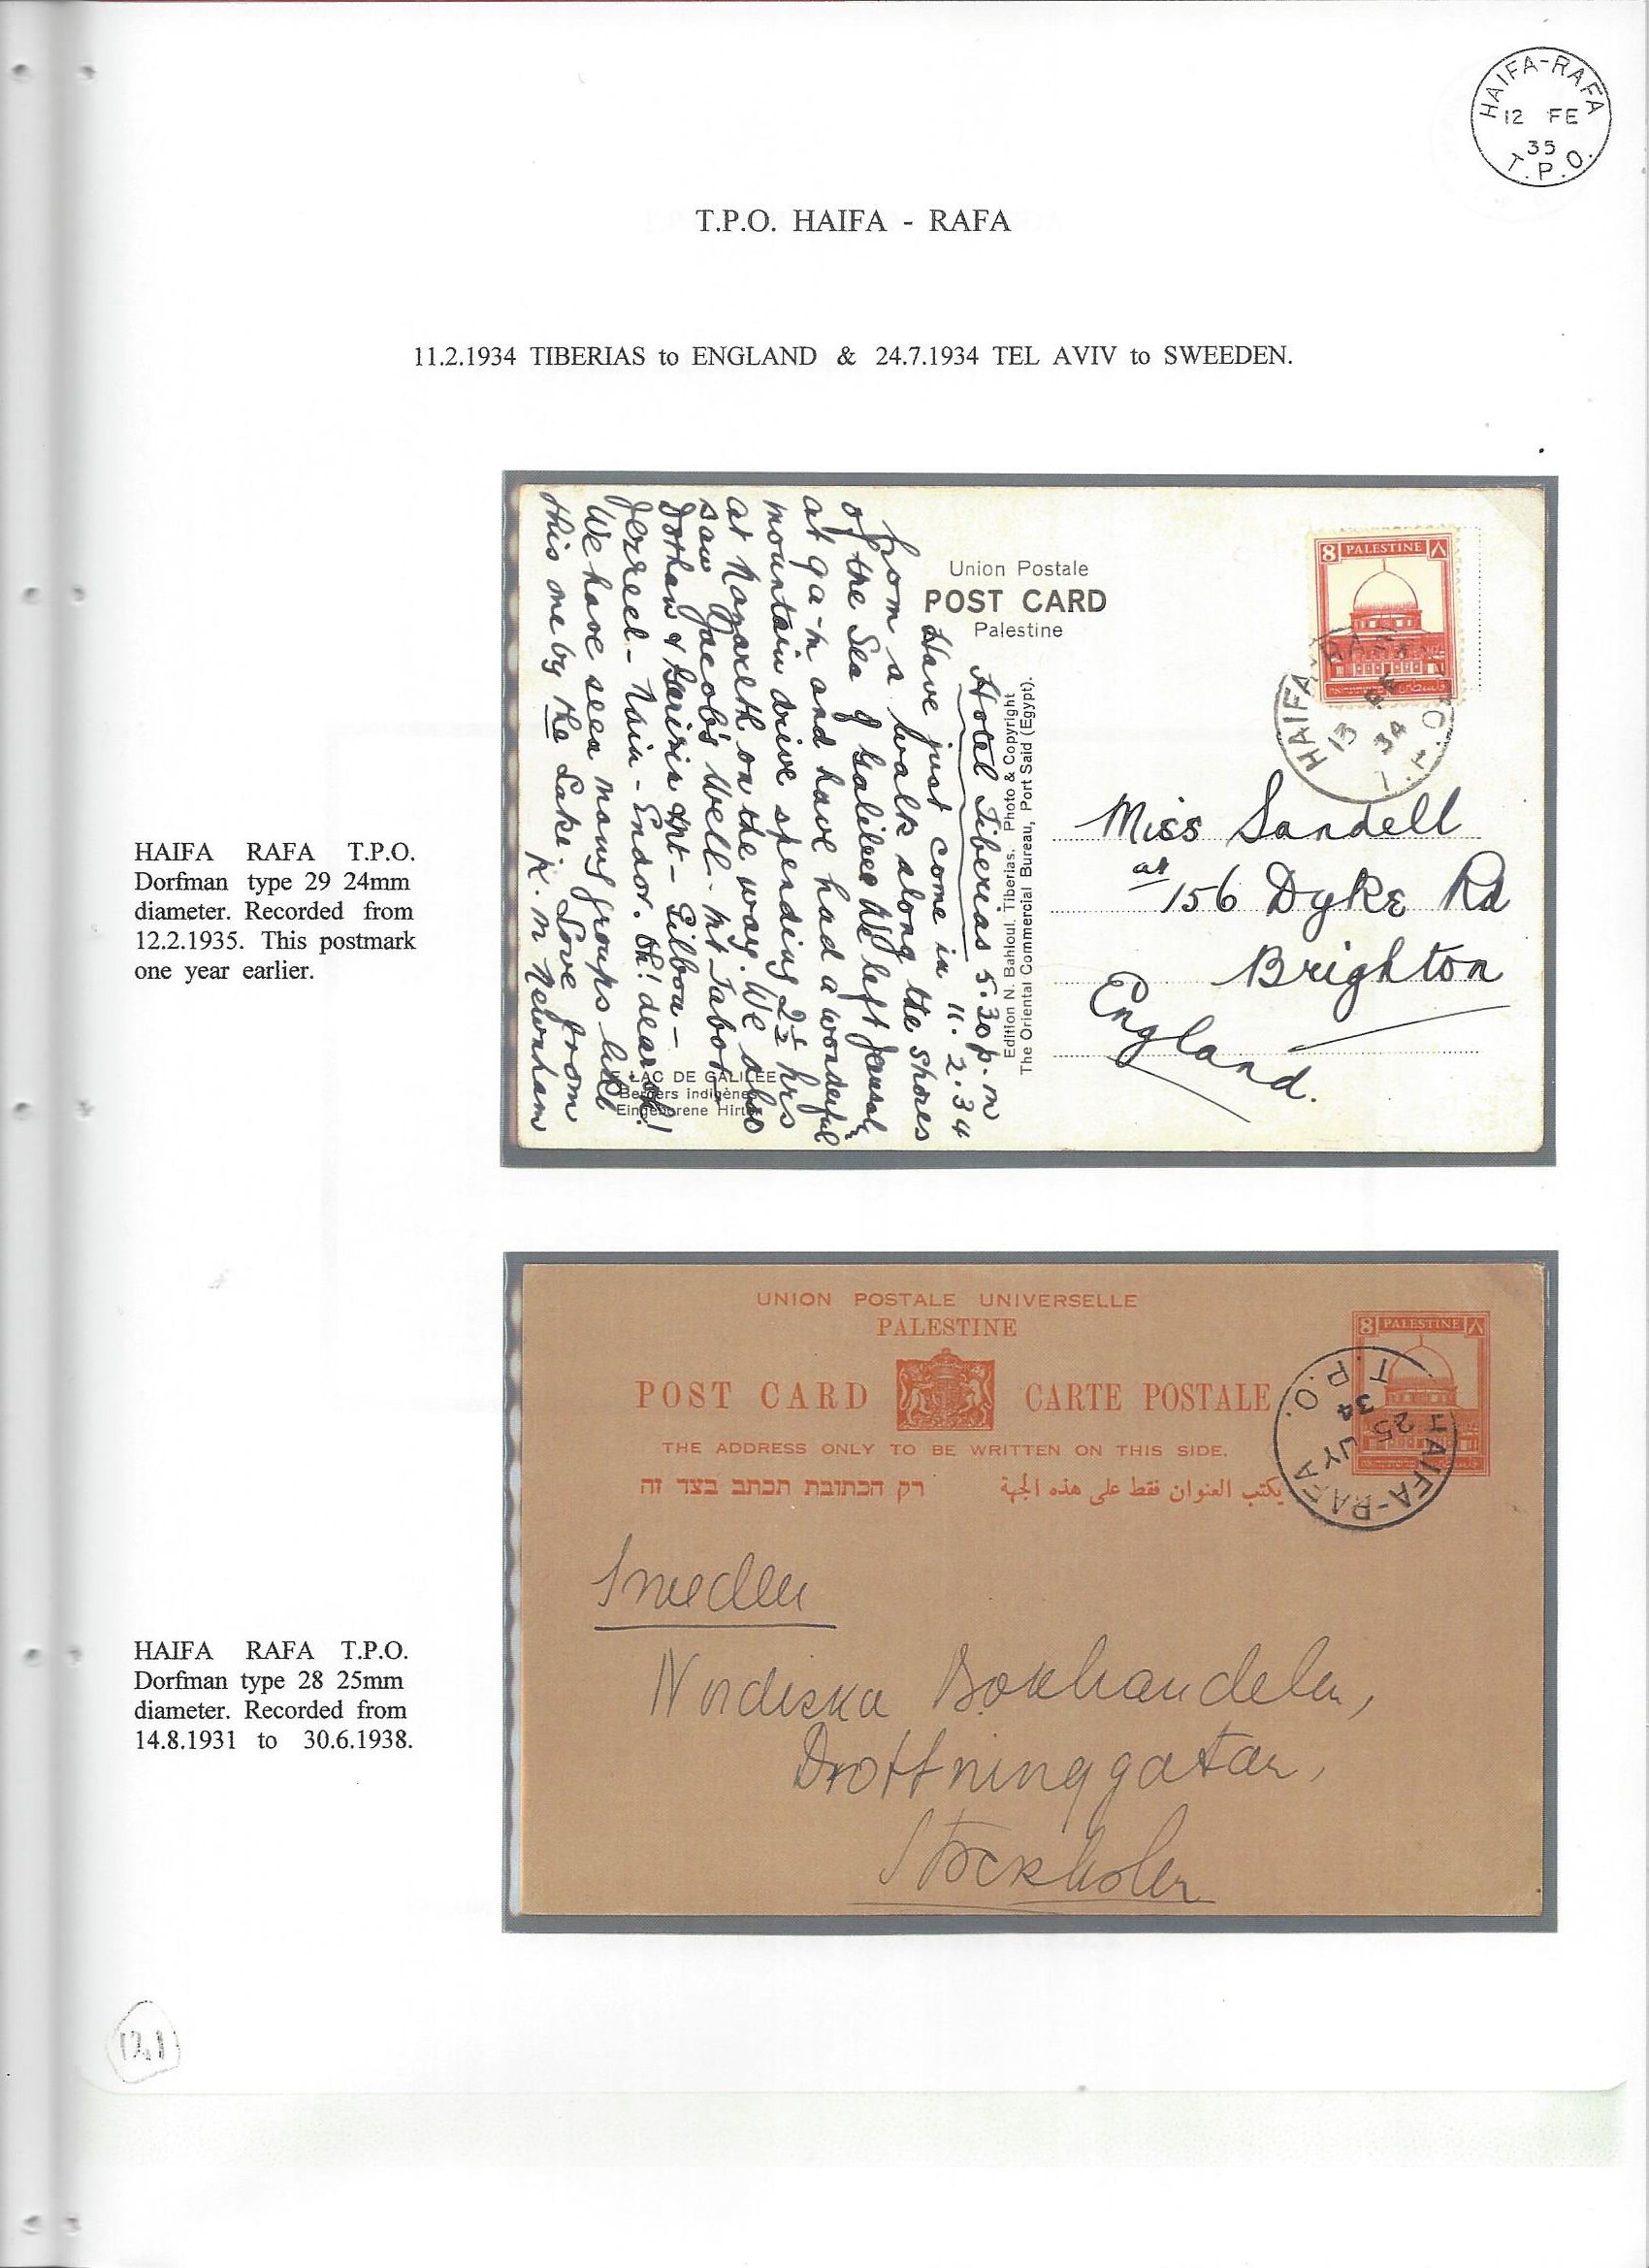 HAIFA-RAFA
12 FE
35
T.P.O.
T.P.O. HAIFA - RAFA
11.2.1934 TIBERIAS to ENGLAND & 24.7.1934 TEL AVIV to SWEEDEN.
HAIFA RAFA T.P.O.
Dorfman type 29 24mm
diameter. Recorded from
12.2.1935. This postmark
one year earlier.
Union Postale
POST CARD
Palestine
8 PALESTINE ٨
HAIFA-RAFA
13 FE
34
T.P.O.
Hotel Tiberias 5.30 p.m
11.2.34
Have just come in
from a walk along the shores
of the Sea of Galilee. We left Jerusalem
at 9 a-m and have had a wonderful
mountain drive spending 2½ hrs
at Nazareth on the way. We also
saw Jacob's Well - Mt Tabor
Dothan &
Jezreel - Nain - Endor. Oh! dear oh!
We have seen many groups like
this one by the Lake. Love from
K. M Newnham
Edition N. Bahloul, Tiberias. Photo & Copyright
The Oriental Commercial Bureau, Port Said (Egypt).
LAC DE GALILÉE
Bergers indigènes
Eingeborene Hirten
Miss Sandell
at 156 Dyke Rd
Brighton
England.
HAIFA RAFA T.P.O.
Dorfman type 28 25mm
diameter. Recorded from
14.8.1931 to 30.6.1938.
UNION POSTALE UNIVERSELLE
PALESTINE
POST CARD CARTE POSTALE
THE ADDRESS ONLY TO BE WRITTEN ON THIS SIDE.
רק הכתובת תכתב בצד זה يكتب العنوان فقط على هذه الجهة
8 PALESTINE ٨
HAIFA-RAFA
25 JY
34
T.P.O.
Sweden
Nordiska Bokhandeln,
Drottninggatan,
Stockholm
121